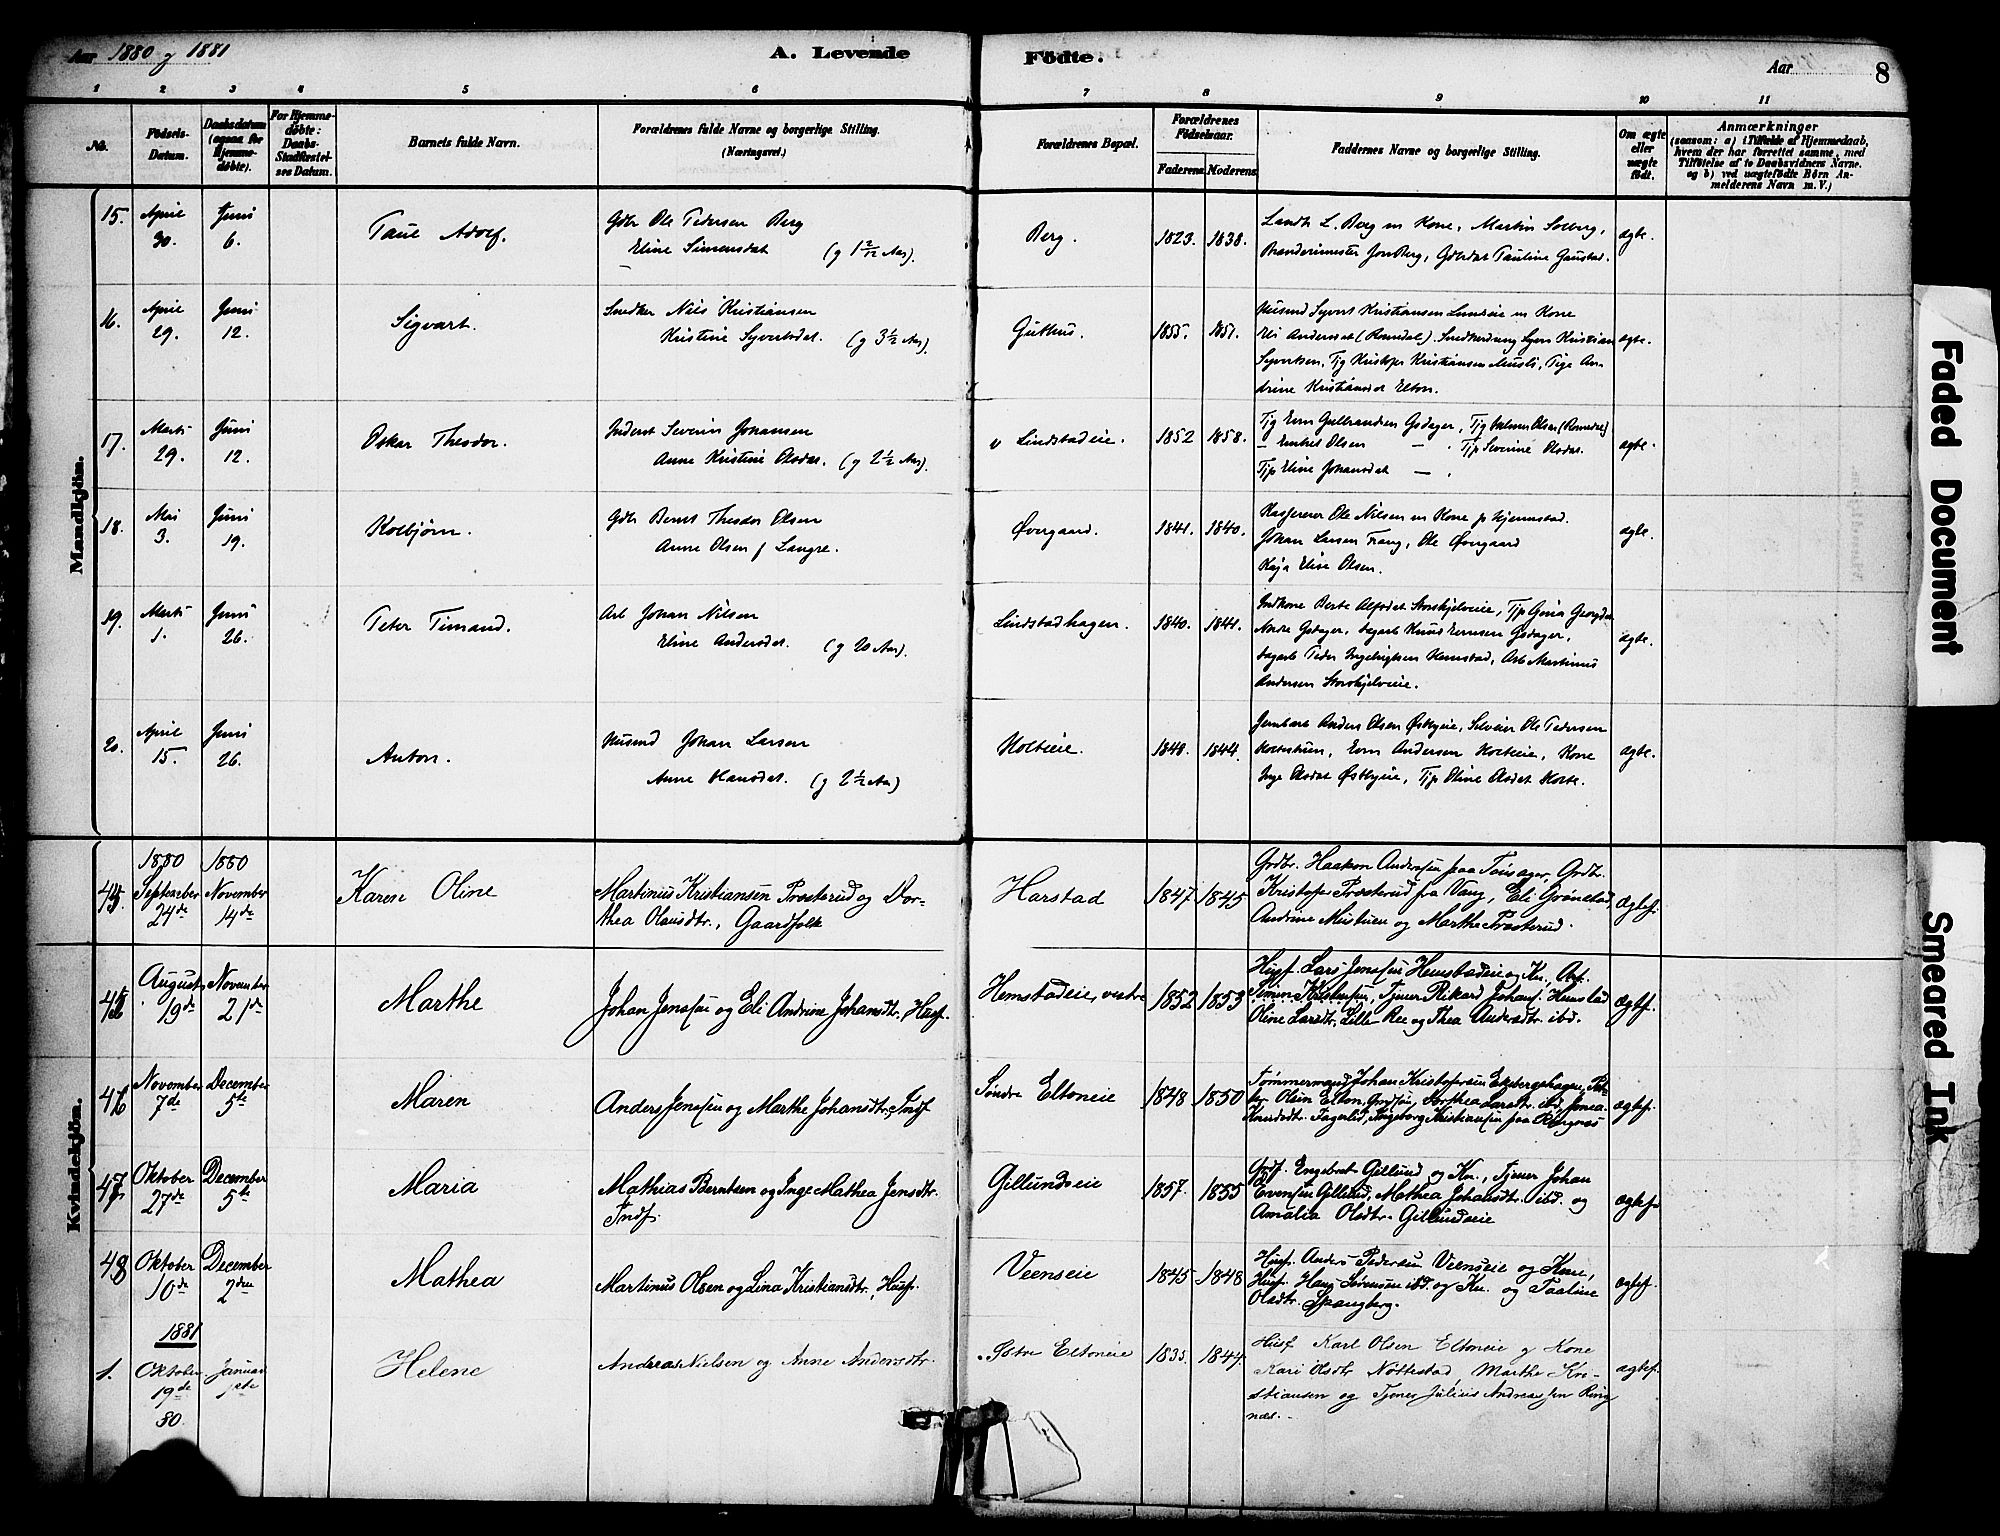 Aar 1880 g 1881
A. Levende Födte.
Aar
8
1 2 3 4 5 6 7 8 9 10 11
No.
Födsels-Datum.
Daabsdatum (ogsaa for Hjemmedöbte).
For Hjemmedöbte: Daabs-Stadfæstelses Datum.
Barnets fulde Navn.
Forældrenes fulde Navne og borgerlige Stilling. (Næringsvei.)
Forældrenes Bopæl.
Forældrenes Födselsaar.
Faderens Moderens
Faddernes Navne og borgerlige Stilling.
Om ægte eller uægte födt.
Anmærkninger
(saasom: a) i Tilfælde af Hjemmedaab,
hvem der har forrettet samme, med
Tilföielse af to Daabsvidners Navne.
og b) ved uægtefödte Börn An-
melderens Navn m. V.)
Mandkjön.
15. April 30. Juni 6. Paul Adolf. Gdbr Ole Pedersen Berg
Eline Simensdat (g 1 2/12 Aar).
Berg. 1823. 1838. Landh L. Berg m Kone, Martin Solberg,
Brandermester Jon Berg, Gdbrdat Pauline Gaustad. ægte.
16. April 29. Juni 12. Sigvart. Snedker Nils Kristiansen
Kristine Syvertsdat. (g 3 1/2 Aar).
Guthus. 1855. 1851. Husmd Syvert Kristiansen Lundeie m Kone
Eli Andersdat (Romedal). Snedkerdreng Syver Kristian
Syvertsen, Tjg Kristofer Kristiansen Musli, Pige An-
drine Kristiansdat Elton. ægte.
17. Marts 29. Juni 12. Oskar Theodor. Inderst Severin Johansen
Anne Kristine Olsdat. (g 2 1/2 Aar).
v Lindstadeie. 1852 1858. Tjg Even Gulbrandsen Gsdager, Tjg Olsen (Romedal)
Olsen — . Tjp Severine Olsdat.
Tjp Eline Johansdat — . ægte.
18. Mai 3. Juni 19. Kolbjørn. Gdbr Bernt Theodor Olsen
Anne Olsen f Langre.
Øvergaard. 1841. 1840. Kasserer Ole Nilsen m Kone p Hjemstad.
Johan Larsen Frang, Ole Øvergaard
Kaja Eline Olsen. ægte.
19. Marts 1. Juni 26. Peter Timand. Arb Johan Nilsen
Eline Andersdat. (g 20 Aar).
Lindstadhagen. 1840. 1841. Indkone Berte Alfsdat Storskjelveie, Tjp Gina
Andre Gsdager, dagarb Knut Evensen Gsdager,
dagarb Peder Ingebrigtsen Hemstad, Arb Martinus
Andersen Storskjelveie. ægte.
20. April 15. Juni 26. Anton. Husmd Johan Larsen
Anne Hansdat. (g 2 1/2 Aar)
Holteie. 1848. 1844. Jernbarb Anders Olsen Østbyeie, Selveier Ole Pedersen
Holtestuen, Even Andersen Holteie, Kone
Inge Olsdat Østbyeie, Tjp Oline Olsdat Holte. ægte.
Kvindekjön.
45. 1880 September 24de 1880 November 14de Karen Oline Martinius Kristiansen Prosterud og Dor-
thea Olausdtr., Gaardfolk
Harstad 1847 1845 Grdbr. Haakon Andersen paa Tønsager, Grdb.
Kristofer Prosterud fra Vang, Eli Grønstad,
Andrine Mustuen og Marthe Prosterud. ægtef.
45 August 19de November 21de Marthe Johan Jensen og Eli Andrine Johansdtr., Husf.
Hemstadeie, vestre 1852 1853 Husf. Lars Jensen Hemstadeie og Kn., Arb.
Simen Kristensen, Tjener Rikard Johans. Hemstad
Oline Larsdtr. Lille Ree og Thea Andersdtr. ibd. ægtef.
46 November 7de December 5te Maren Anders Jensen og Marthe Johansdtr., Indf
Søndre Eltoneie 1848 1850 Tømmermand Johan Kristofersen Ekebergshagen, Pet-
ter Olsen Elton, Grdsøn, Dorthea Larsdtr. ibd, Jonea
Knudsdtr. Fagerlid, Ingeborg Kristiansen paa Ringnæs ægtef.
47 Oktober 27de December 5te Maria Mathias Berntsen og Inge Mathea Jensdtr.
Indf.
Gillundseie 1857. 1855 Grdf. Engebret Gillund og Kn., Tjener Johan
Evensen Gillund, Mathea Johansdtr. ibd. og
Amalia Olsdtr. Gillundseie ægtef.
48 Oktober 10de December 2den Mathea Martinus Olsen og Lina Kristiansdtr., Husf.
Veenseie 1845 1848 Husf. Anders Pedersen Veenseie og Kone,
Husf. Hans Sørensen ibd. og Kn. og Paaline
Olsdtr. Spangberg. ægtef.
1881
1. Oktober 19de 80. Januar 1ste Helene Andreas Nielsen og Anne Andersdtr.
Østre Eltoneie 1835. 1844. Husf Karl Olsen Eltoneie g Kone
Kari Olsdtr Nøttestad, Marthe Kri-
stiansen og Tjener Julius Andreassen Ring
næs.— ægtef.
Faded Document
Smeared Ink